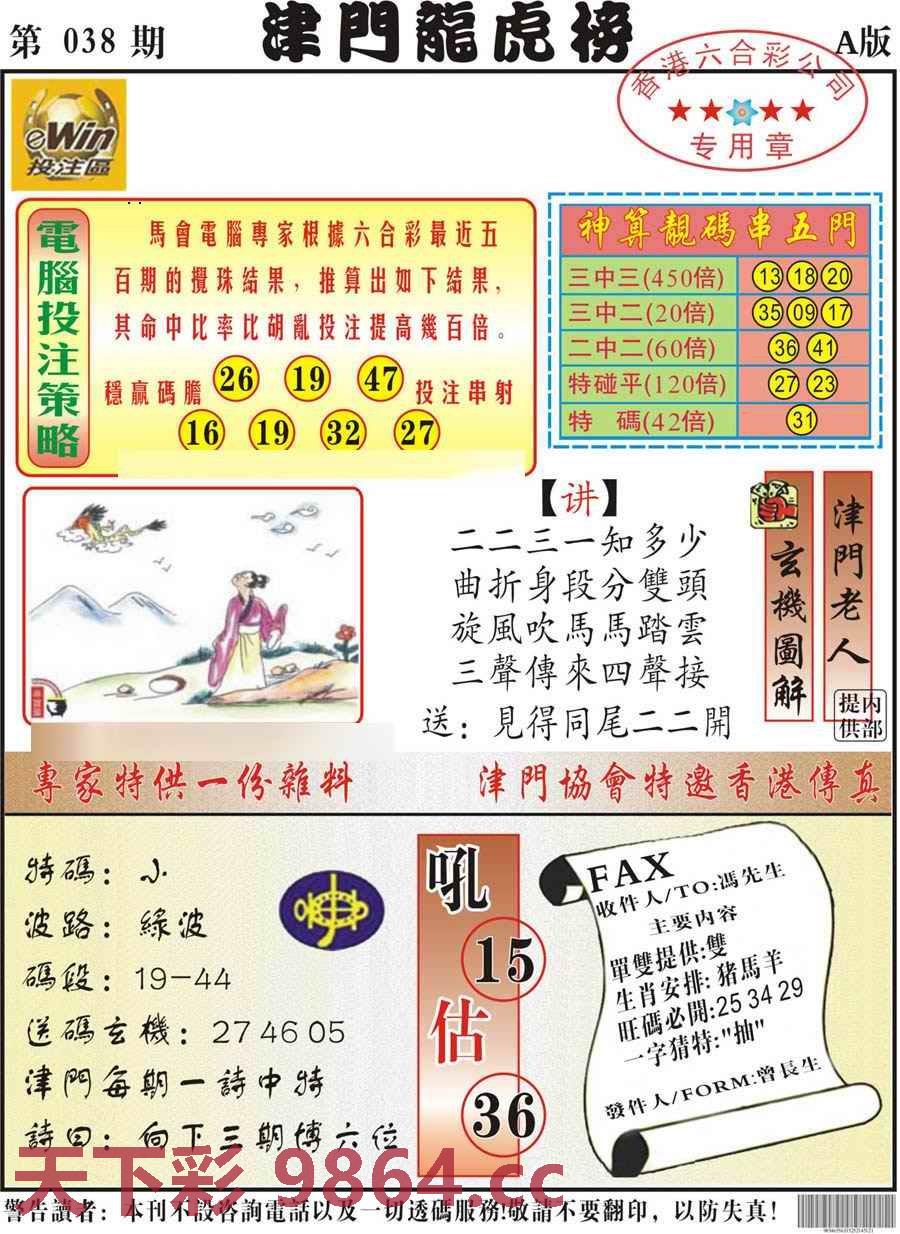 第 038 期
津門龍虎榜
A版
香港六合彩公司
专用章
eWin
投注區
電腦投注策略
馬會電腦專家根據六合彩最近五
百期的攪珠結果，推算出如下結果，
其命中比率比胡亂投注提高幾百倍。
穩贏碼膽 26 19 47 投注串射
16 19 32 27
神算靚碼串五門
三中三(450倍) 13 18 20
三中二(20倍) 35 09 17
二中二(60倍) 36 41
特碰平(120倍) 27 23
特 碼(42倍) 31
【讲】
二二三一知多少
曲折身段分雙頭
旋風吹馬馬踏雲
三聲傳來四聲接
送：見得同尾二二開
玄機圖解
津門老人
内部提供
專家特供一份雜料
津門協會特邀香港傳真
特碼：小
波路：綠波
碼段：19-44
送碼玄機：27 46 05
津門每期一詩中特
詩曰：向下三期博六位
吼
15
估
36
FAX
收件人/TO:馮先生
主要内容
單雙提供:雙
生肖安排:猪馬羊
旺碼必開:25 34 29
一字猜特:"抽"
發件人/FORM:曾長生
天下彩 9864.cc
警告讀者：本刊不設咨詢電話以及一切透碼服務!敬請不要翻印，以防失真！